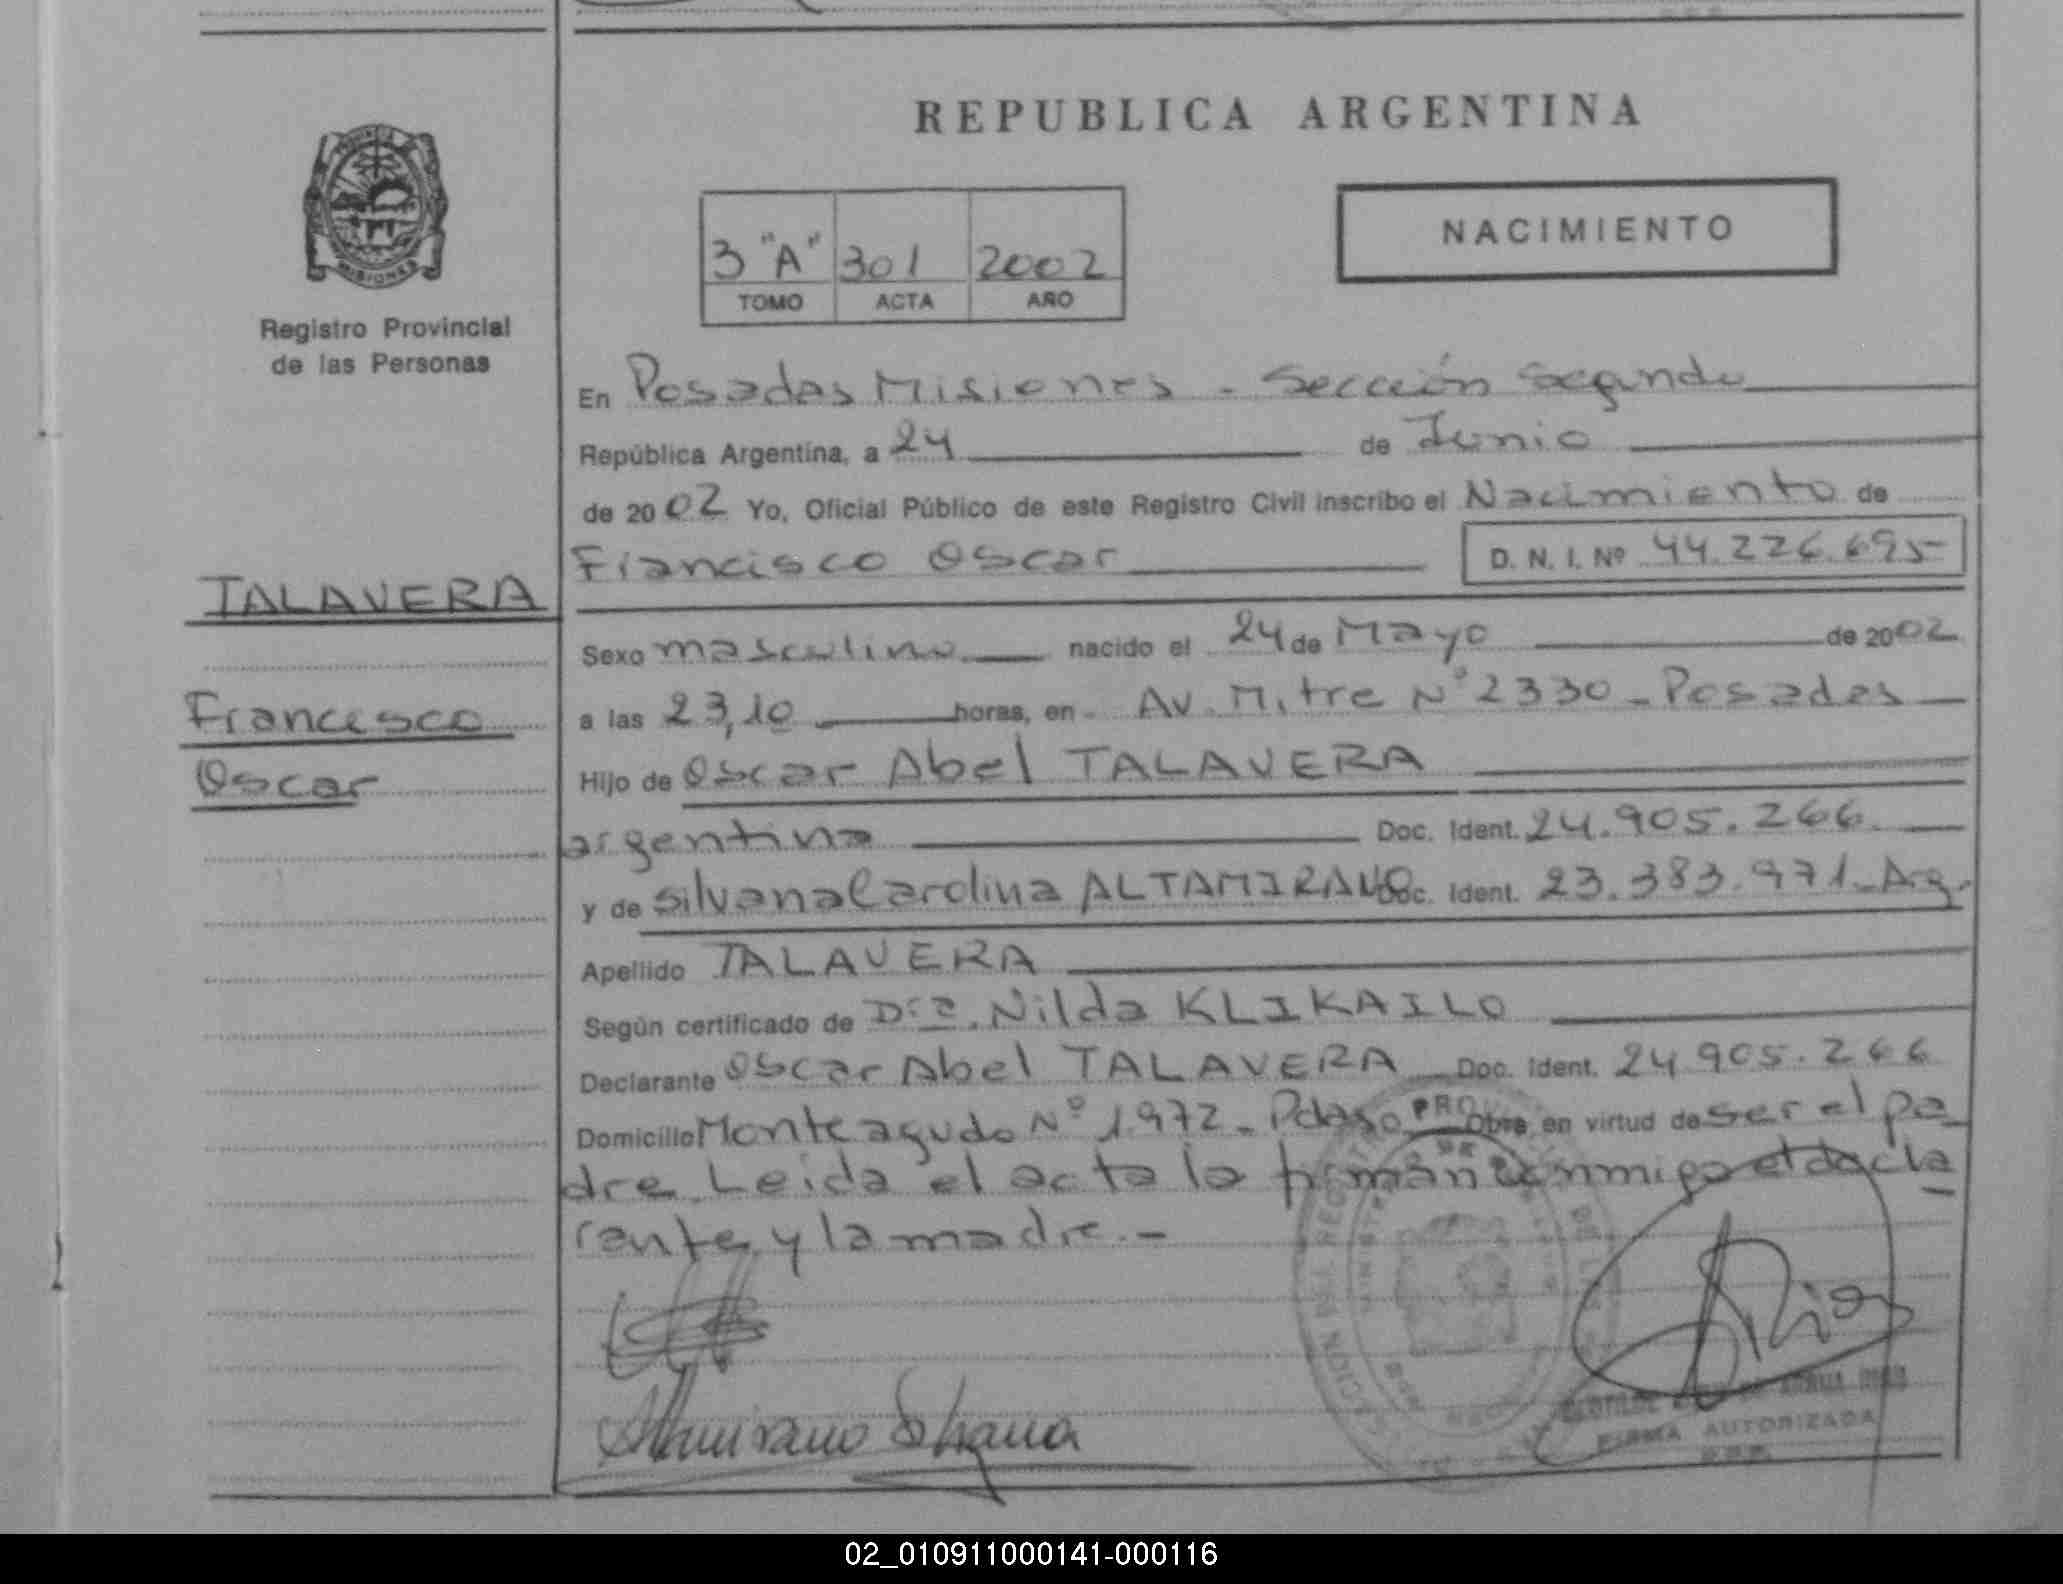 REPUBLICA ARGENTINA
NACIMIENTO
3 "A" 301 2002
TOMO ACTA AÑO
PROVINCIA
MISIONES
Registro Provincial
de las Personas
En Posadas Misiones - Sección Segunda
República Argentina, a 24 de Junio
de 2002 Yo, Oficial Público de este Registro Civil inscribo el Nacimiento de
Francisco Oscar D. N. I. Nº 44.226.695
TALAVERA
Francisco
Oscar
Sexo masculino nacido el 24 de Mayo de 2002
a las 23,10 horas, en Av. Mitre Nº 2330 - Posadas
Hijo de Oscar Abel TALAVERA
argentina Doc. Ident. 24.905.266
y de Silvana Carolina ALTAMIRANO Doc. Ident. 23.383.971 - Arg.
Apellido TALAVERA
Según certificado de Dra. Nilda KLIKAILO
Declarante Oscar Abel TALAVERA Doc. Ident. 24.905.266
Domicilio Monteagudo Nº 1972 - Pdas Obra en virtud de ser el pa
dre. Leida el acta la firman conmigo el decla
rante y la madre. -
Altamirano Silvana
FIRMA AUTORIZADA
02_010911000141-000116